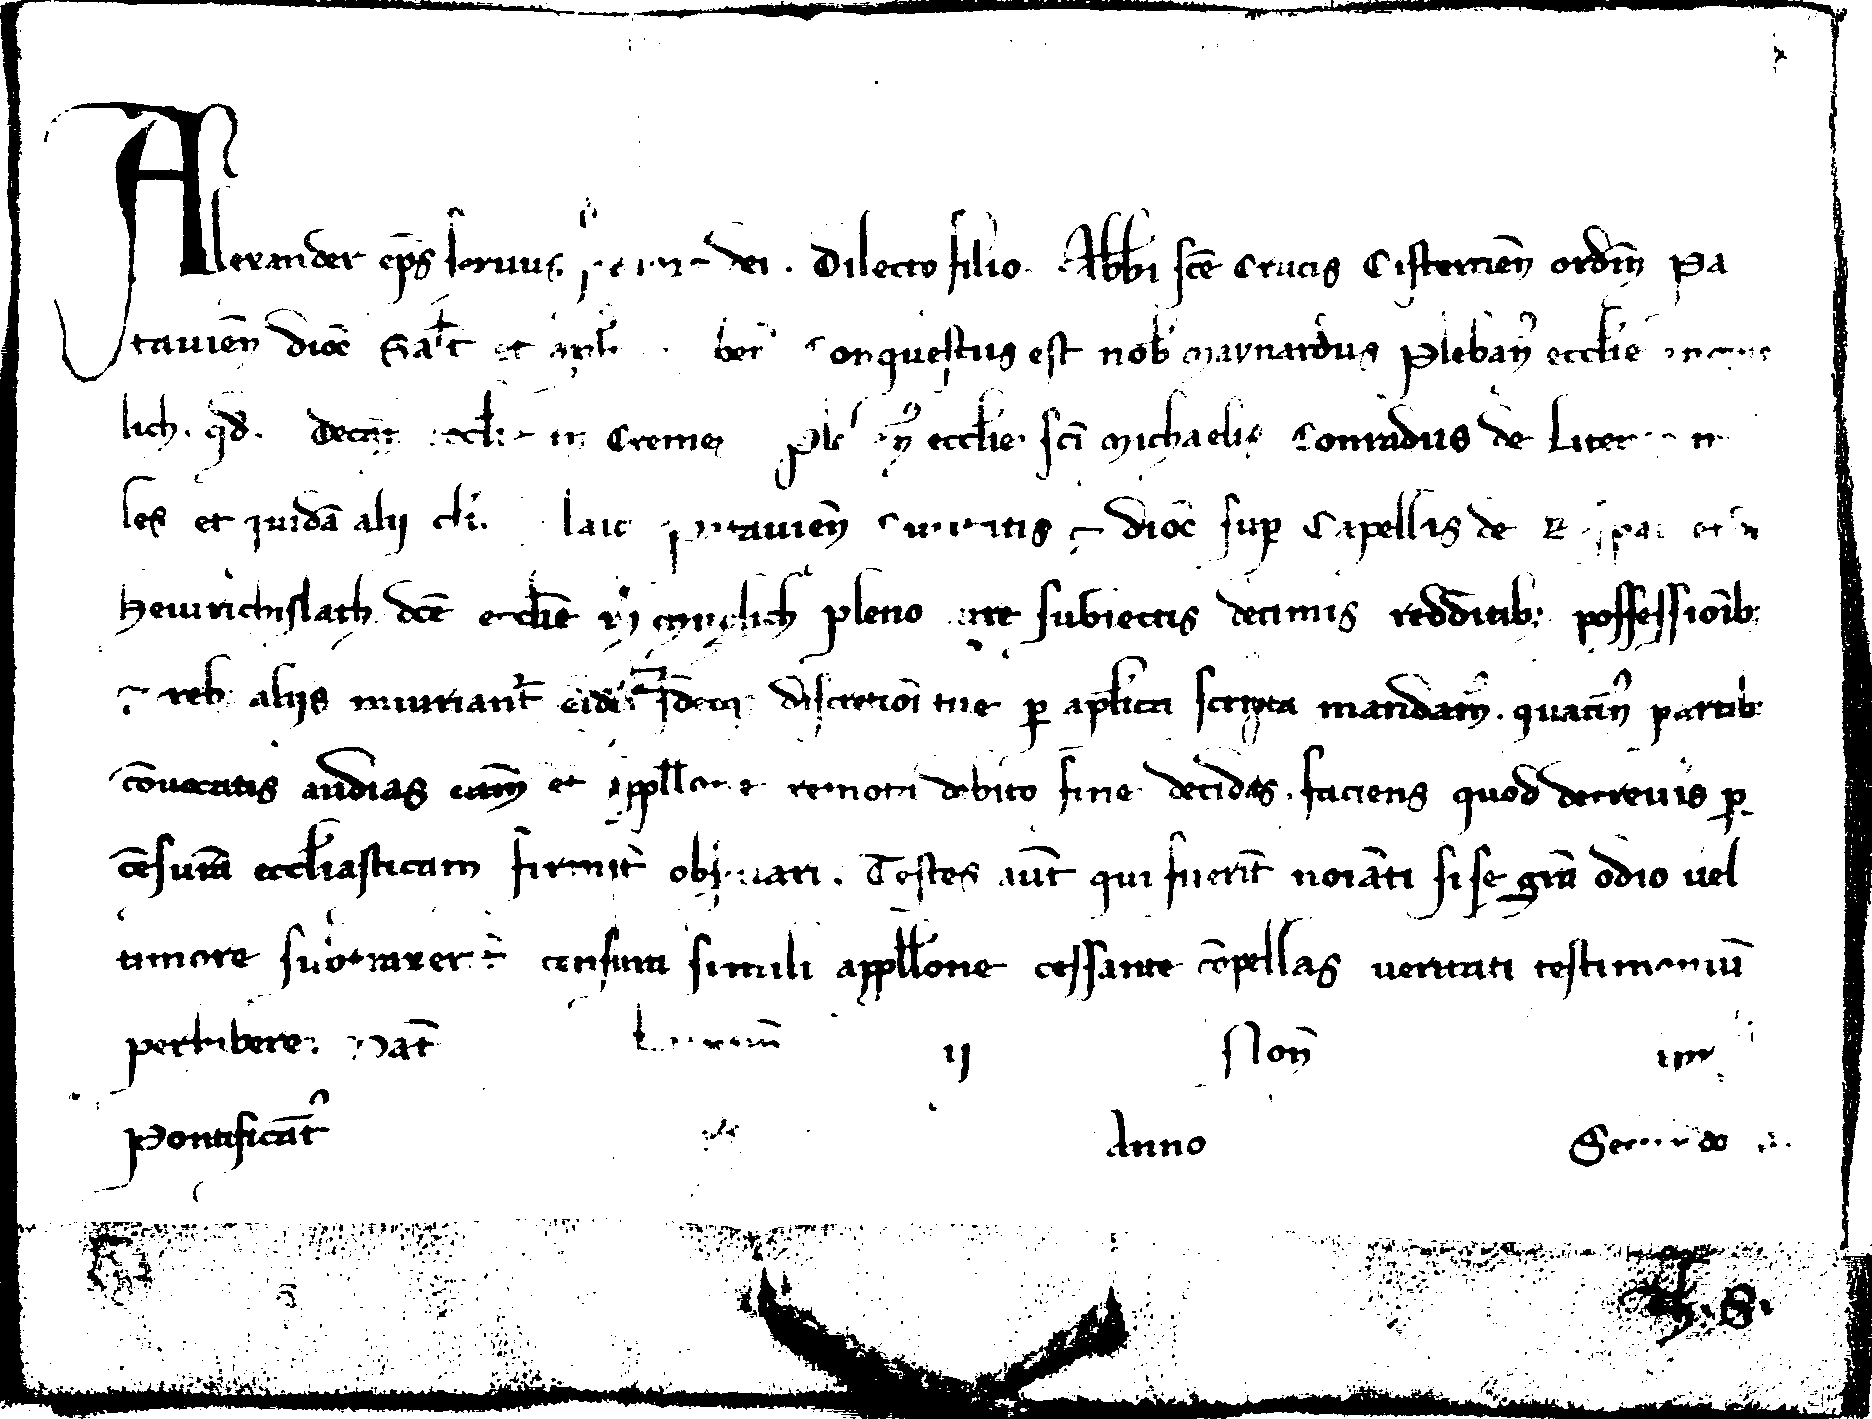 Alexander ep̄s seruus seruorꝝ dei . Dilecto filio . Abb̄i sc̄e Crucis Cistercien̄ ordin̄ Pa
tauien̄ dioc̄ Sal̄t et ap̄l Conquestus est nob̄ Maynardus Pleban᾽ eccl̄ie
lich . qd̄ . Decan᾽ eccl̄ie in Creme᷑ Pleban᾽ eccl̄ie sc̄i Michaelis Conradus de
les et quidā alij cl̄i . laici Patauien̄ Ciuitatis ⁊ dioc̄ sup̱ Capellis de et in
Heinrichislath dc̄e eccl̄ie pleno iure subiectis decimis reddītib; possessioīb;
⁊ reb; aliis iniuriant̄ eidē Ideoq; discretioī tue ꝑ ap̄lica scripta mandam᾽ . quatin᾽ partib;
cōuocatis audias cām et appell̄one remota debito fine decidas . faciens quod decreueris ꝑ
cēsurā eccl̄iasticam firmit̄ obs̱uari . Testes aūt qui fuerīt noīati si se gr̄a odio uel
timore subtraxerīt censura simili appell̄one cessante cōpellas ueritati testimoniū
perhibere . Dat̄ ij Non̄
Pontificat̄᾽ Anno Secundo